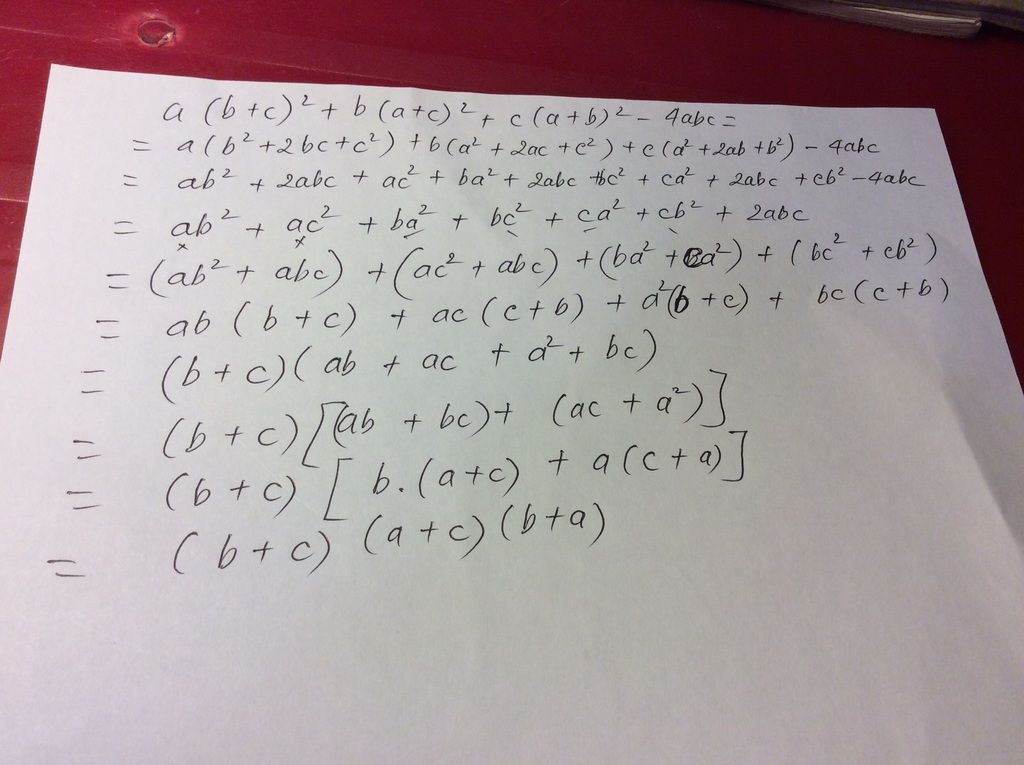 a (b+c)² + b (a+c)² + c (a+b)² - 4abc =
= a(b²+2bc+c²) + b(a² + 2ac + c²) + c(a²+2ab+b²) - 4abc
= ab² + 2abc + ac² + ba² + 2abc + bc² + ca² + 2abc + cb² - 4abc
= ab² + ac² + ba² + bc² + ca² + cb² + 2abc
= (ab² + abc) + (ac² + abc) + (ba² + ca²) + (bc² + cb²)
= ab (b + c) + ac (c + b) + a²(b + c) + bc (c + b)
= (b + c)(ab + ac + a² + bc)
= (b + c) [(ab + bc) + (ac + a²)]
= (b + c) [b.(a+c) + a(c+a)]
= (b + c) (a + c) (b+a)